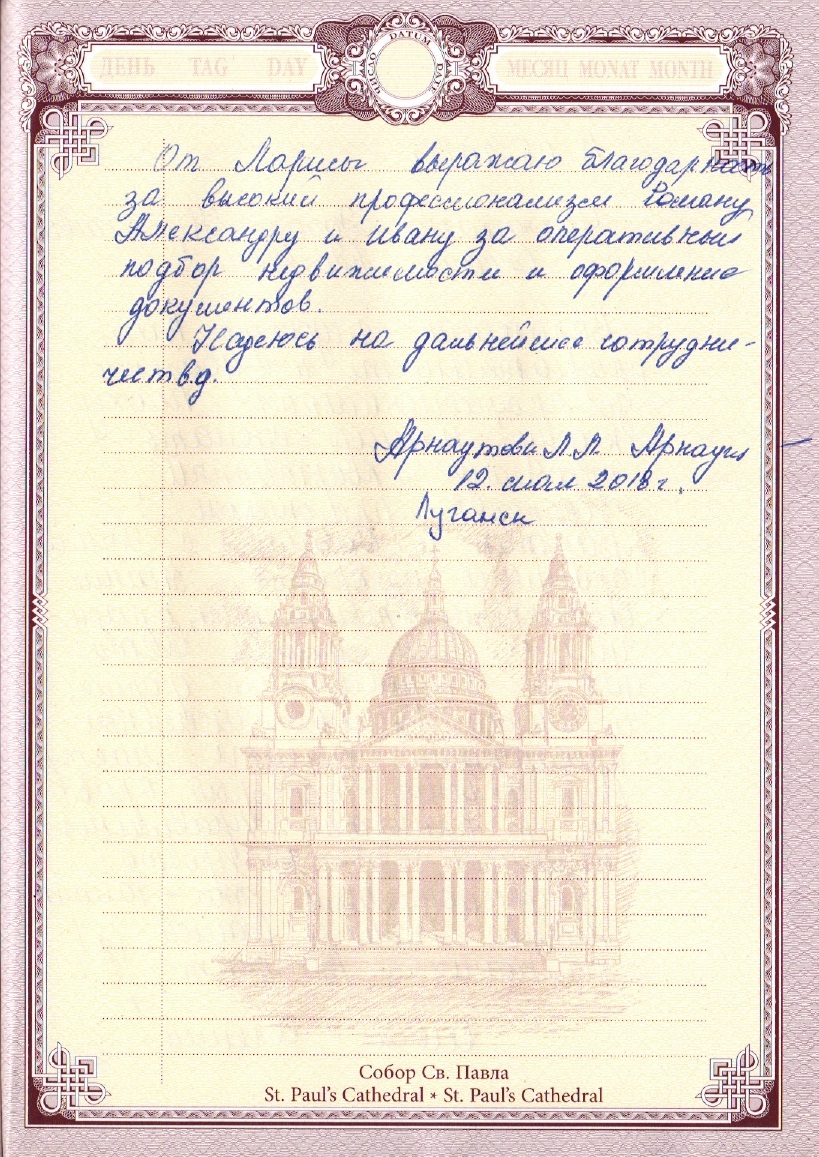 ДЕНЬ TAG DAY
ЧИСЛО DATUM DATE
МЕСЯЦ MONAT MONTH
От Ларисы выражаю благодарность
за высокий профессионализм Роману
Александру и Ивану за оперативный
подбор недвижимости и оформление
документов.
Надеюсь на дальнейшее сотрудни-
чество.
Арнаутова Л.Л.
12. мая 2018 г.
Луганск
Собор Св. Павла
St. Paul's Cathedral * St. Paul's Cathedral